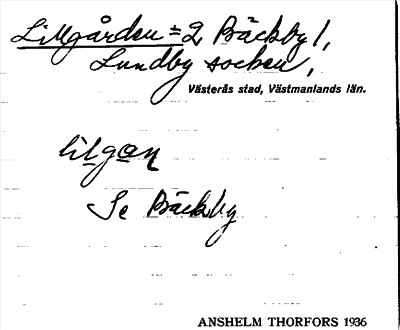 Lillgården = 2 Bäckby 1,
Lundby socken,
Västerås stad, Västmanlands län.
lilgan
Se Bäckby
ANSHELM THORFORS 1936